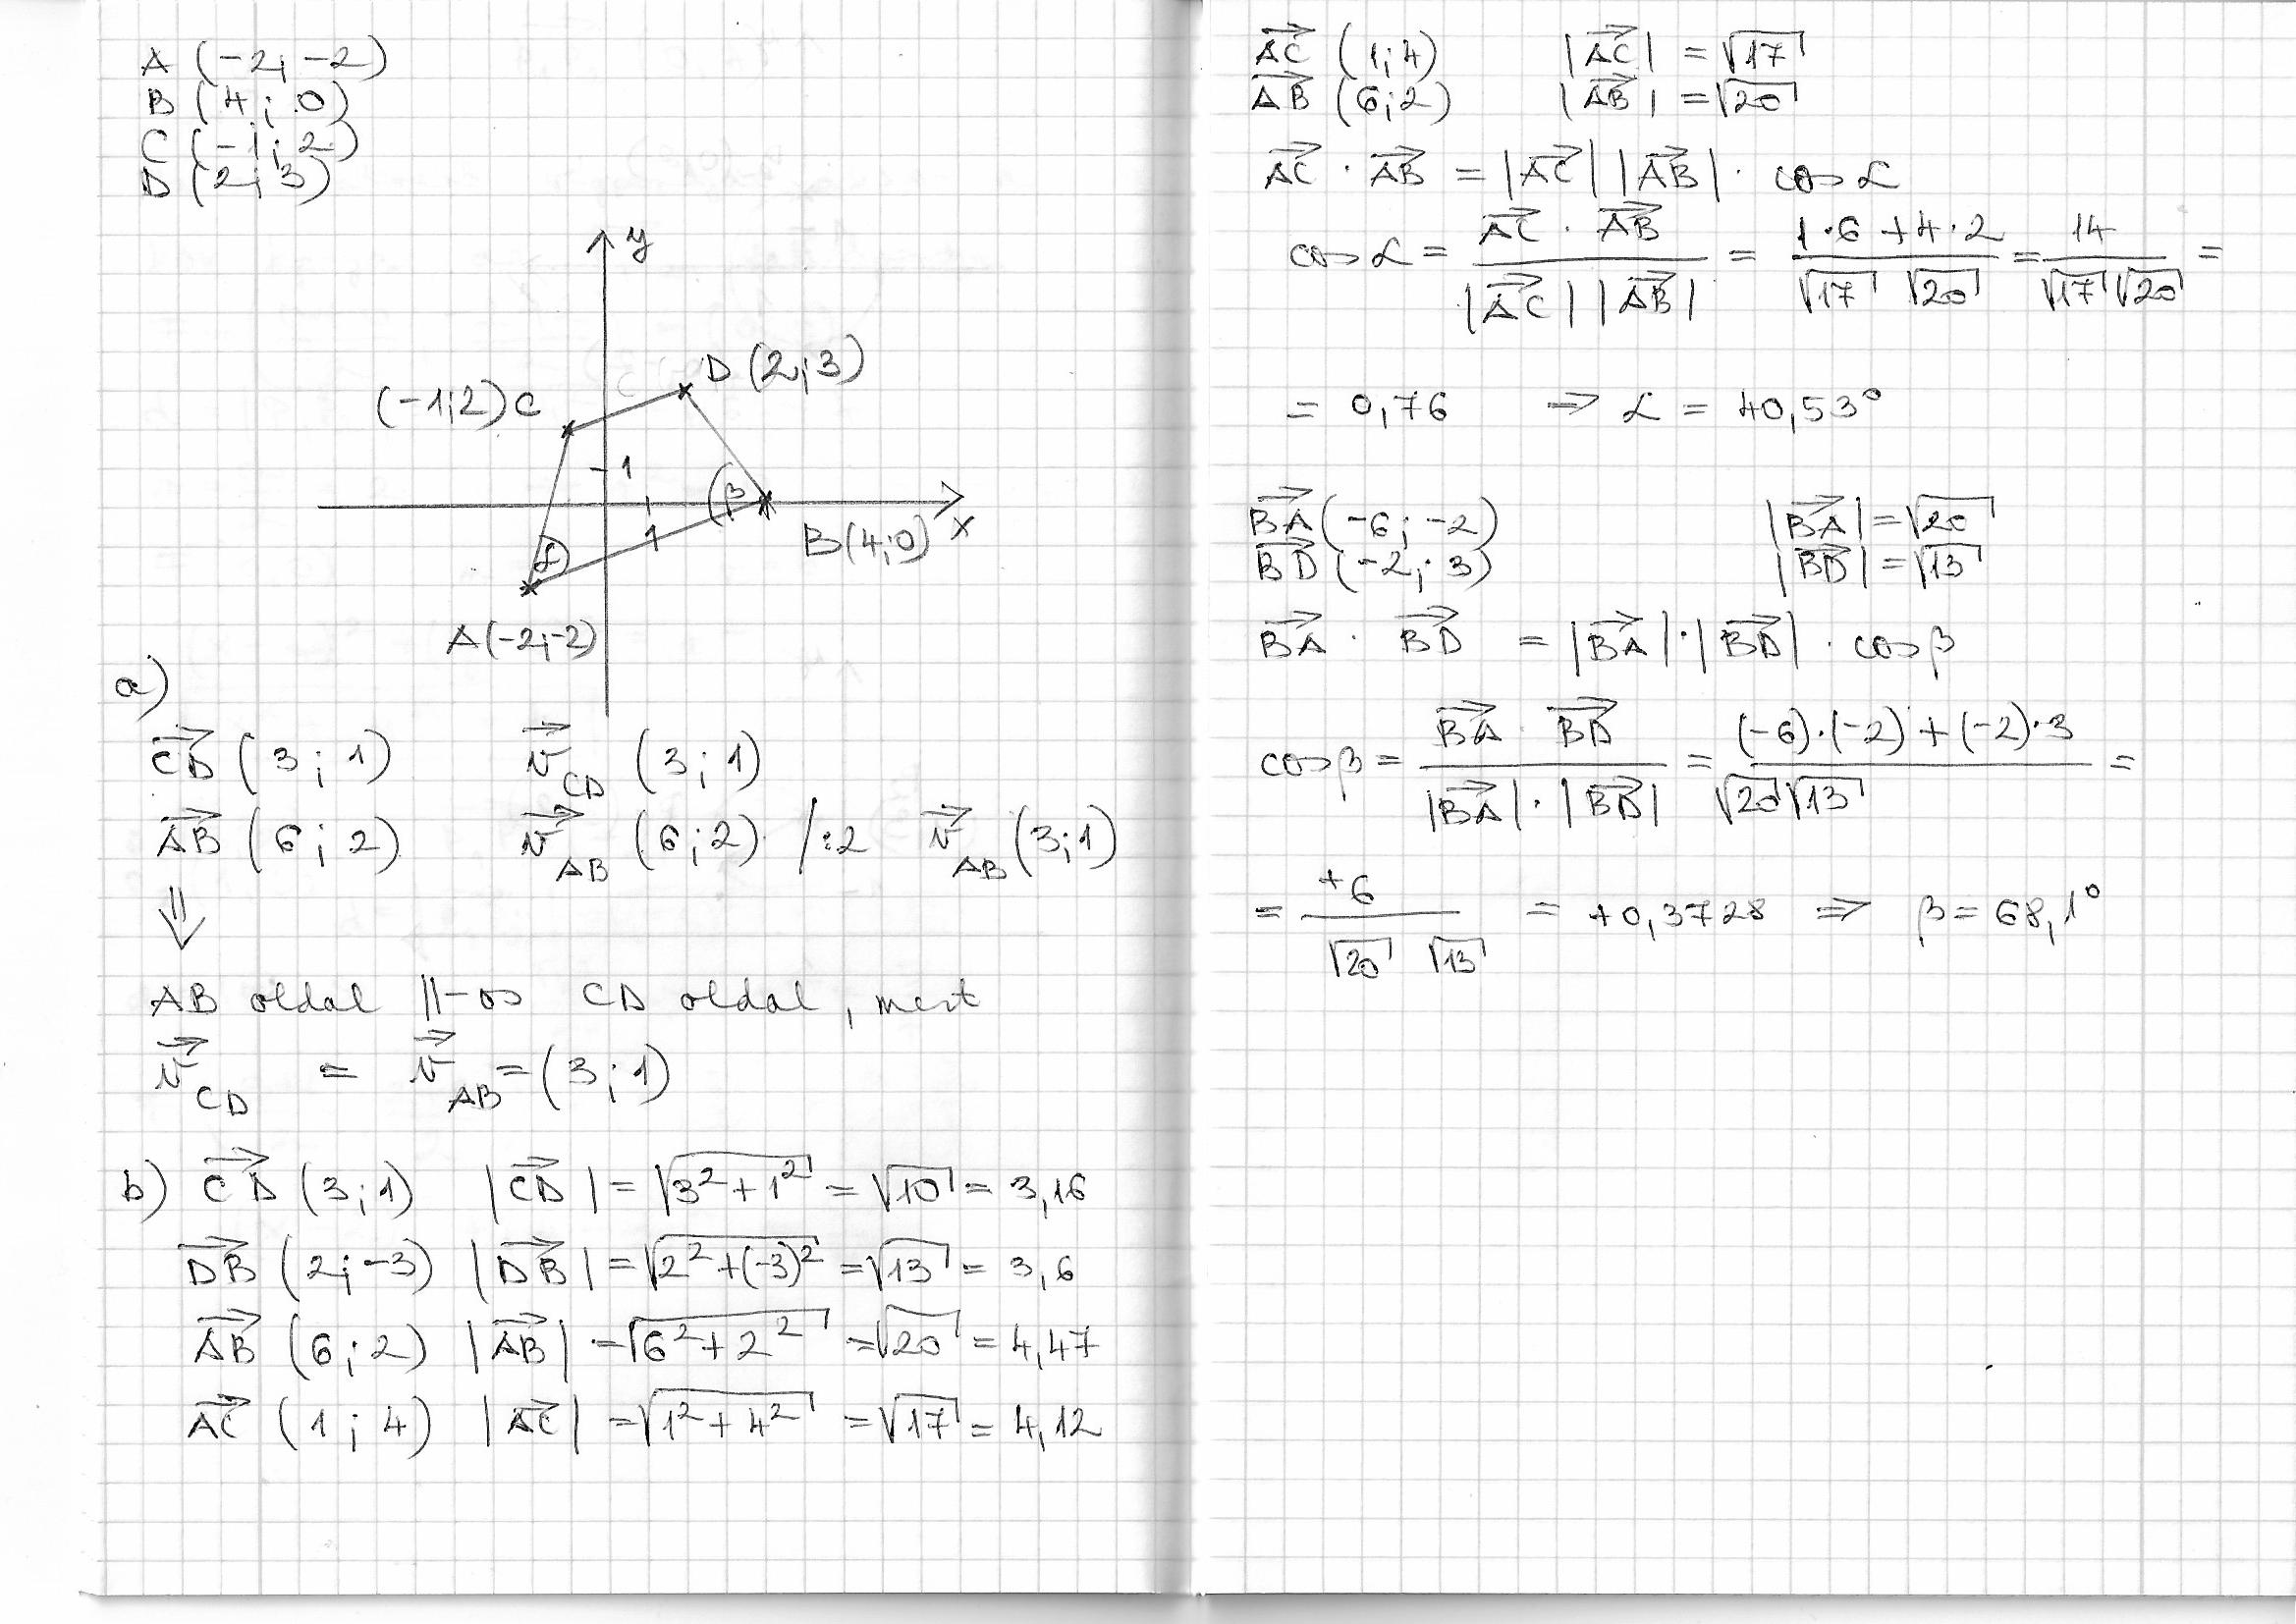 A (-2; -2)
B (4; 0)
C (-1; 2)
D (2; 3)
y
D (2; 3)
(-1; 2) C
1
β
1
B (4; 0) x
α
A (-2; -2)
a)
CD→ (3; 1) v→CD (3; 1)
AB→ (6; 2) v→AB (6; 2) /:2 v→AB (3; 1)
⇓
AB oldal ||-os CD oldal, mert
v→CD = v→AB = (3; 1)
b) CD→ (3; 1) |CD→| = √(3² + 1²) = √10 = 3,16
DB→ (2; -3) |DB→| = √(2² + (-3)²) = √13 = 3,6
AB→ (6; 2) |AB→| = √(6² + 2²) = √20 = 4,47
AC→ (1; 4) |AC→| = √(1² + 4²) = √17 = 4,12
AC→ (1; 4) |AC→| = √17
AB→ (6; 2) |AB→| = √20
AC→ · AB→ = |AC→| |AB→| · cos α
cos α = (AC→ · AB→) / (|AC→| |AB→|) = (1·6 + 4·2) / (√17 √20) = 14 / (√17 √20) =
= 0,76 ⇒ α = 40,53°
BA→ (-6; -2) |BA→| = √20
BD→ (-2; 3) |BD→| = √13
BA→ · BD→ = |BA→| · |BD→| · cos β
cos β = (BA→ · BD→) / (|BA→| · |BD→|) = ((-6)·(-2) + (-2)·3) / (√20 √13) =
= +6 / (√20 √13) = +0,3728 ⇒ β = 68,1°